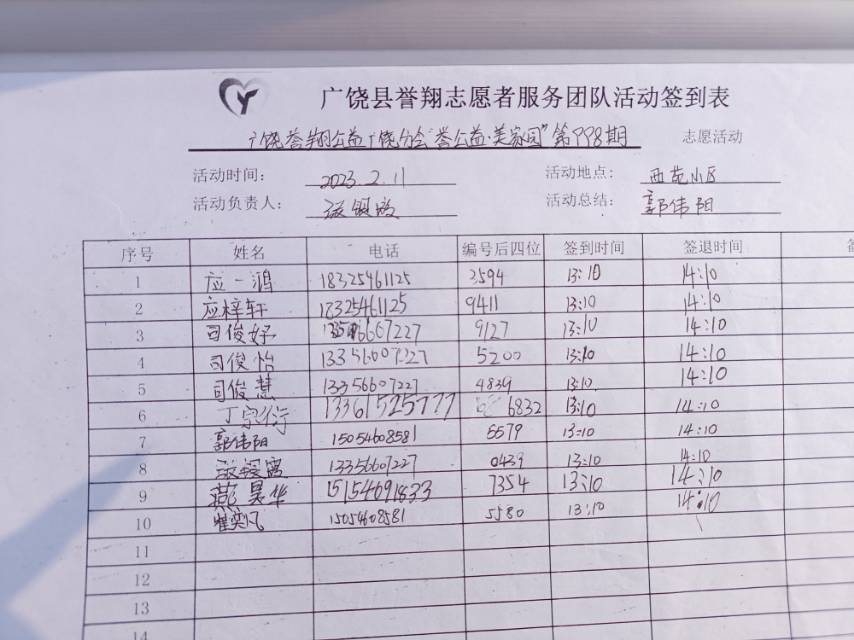 广饶县誉翔志愿者服务团队活动签到表
广饶誉翔公益广饶分会“誉公益·美家园”第998期 志愿活动
活动时间： 2023.2.11 活动地点： 西苑小区
活动负责人： 活动总结： 郭伟阳
序号 姓名 电话 编号后四位 签到时间 签退时间
1 应一鸿 18325461125 3594 13:10 14:10
2 应梓轩 18325461125 9411 13:10 14:10
3 司俊好 9127 13:10 14:10
4 司俊怡 13356607227 5200 13:10 14:10
5 司俊慧 13356607227 4839 13:10 14:10
6 丁宗衍 13361525777 6832 13:10 14:10
7 郭伟阳 15054608581 5579 13:10 14:10
8 13356607227 0439 13:10 14:10
9 燕昊华 15154691833 7354 13:10 14:10
10 崔奕凡 15054608581 5580 13:10 14:10
11
12
13
14